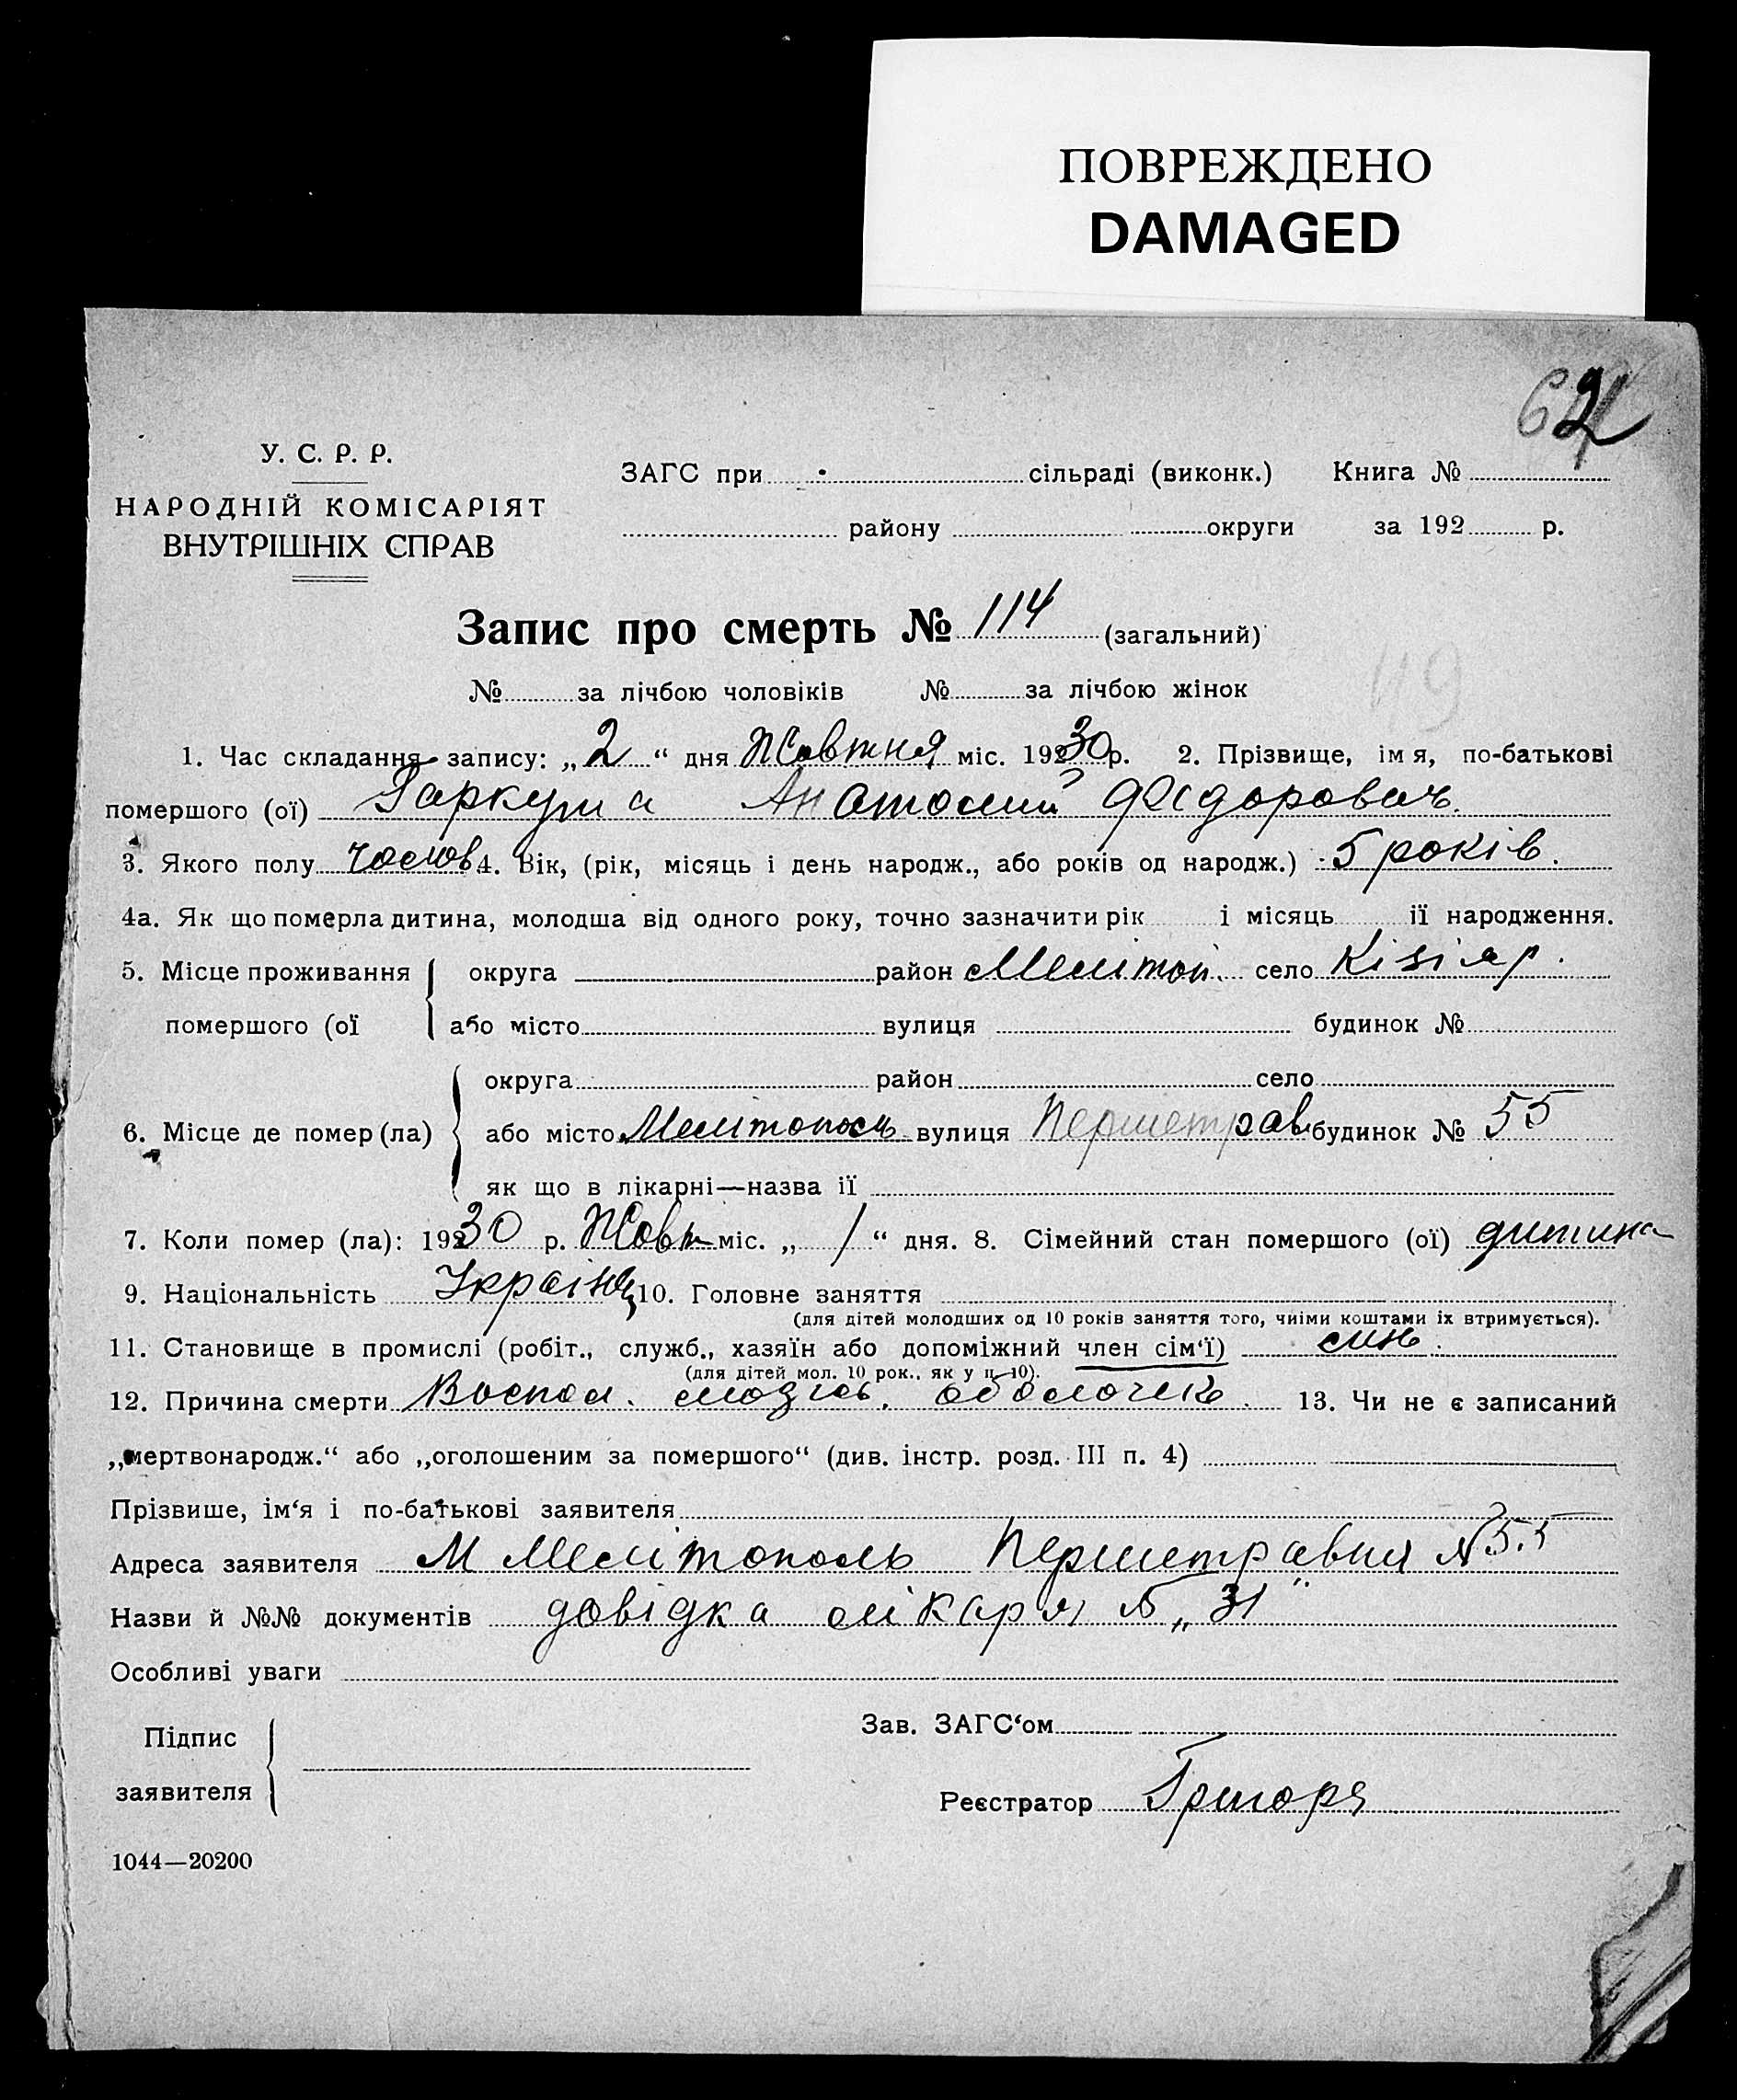 ПОВРЕЖДЕНО
DAMAGED
62
У. С. Р. Р.
НАРОДНІЙ КОМІСАРІЯТ
ВНУТРІШНІХ СПРАВ
ЗАГС при сільраді (виконк.) Книга №
району округи за 192 р.
Запис про смерть № 114 (загальний)
№ за лічбою чоловіків № за лічбою жінок
119
1. Час складання запису: „2“ дня Жовтня міс. 19230 р. 2. Прізвище, імя, по-батькові
помершого (ої) Гаркуша Анатолий Федорович.
3. Якого полу чолов. 4. Вік, (рік, місяць і день народж., або років од народж.) 5 років.
4а. Як що померла дитина, молодша від одного року, точно зазначити рік і місяць її народження.
5. Місце проживання округа район Мелітоп. село Кізіяр.
помершого (ої або місто вулиця будинок №
округа район село
6. Місце де помер (ла) або місто Мелітополь вулиця Першетрав будинок № 55
як що в лікарні—назва її
7. Коли помер (ла): 19230 р. Жовт міс. „1“ дня. 8. Сімейний стан помершого (ої) дитина
9. Національність Украінц 10. Головне заняття
(для дітей молодших од 10 років заняття того, чиїми коштами їх втримується).
11. Становище в промислі (робіт., служб., хазяїн або допоміжний член сім‘ї) син.
(для дітей мол. 10 рок., як у п. 10).
12. Причина смерти Воспал. мозгов. оболочек. 13. Чи не є записаний
„мертвонародж.“ або „оголошеним за помершого“ (див. інстр. розд. III п. 4)
Прізвише, ім‘я і по-батькові заявителя
Адреса заявителя М Мелітополь Першетравня № 55
Назви й №№ документів довідка лікаря № „31“
Особливі уваги
Підпис
заявителя
Зав. ЗАГС‘ом
Реєстратор
1044—20200